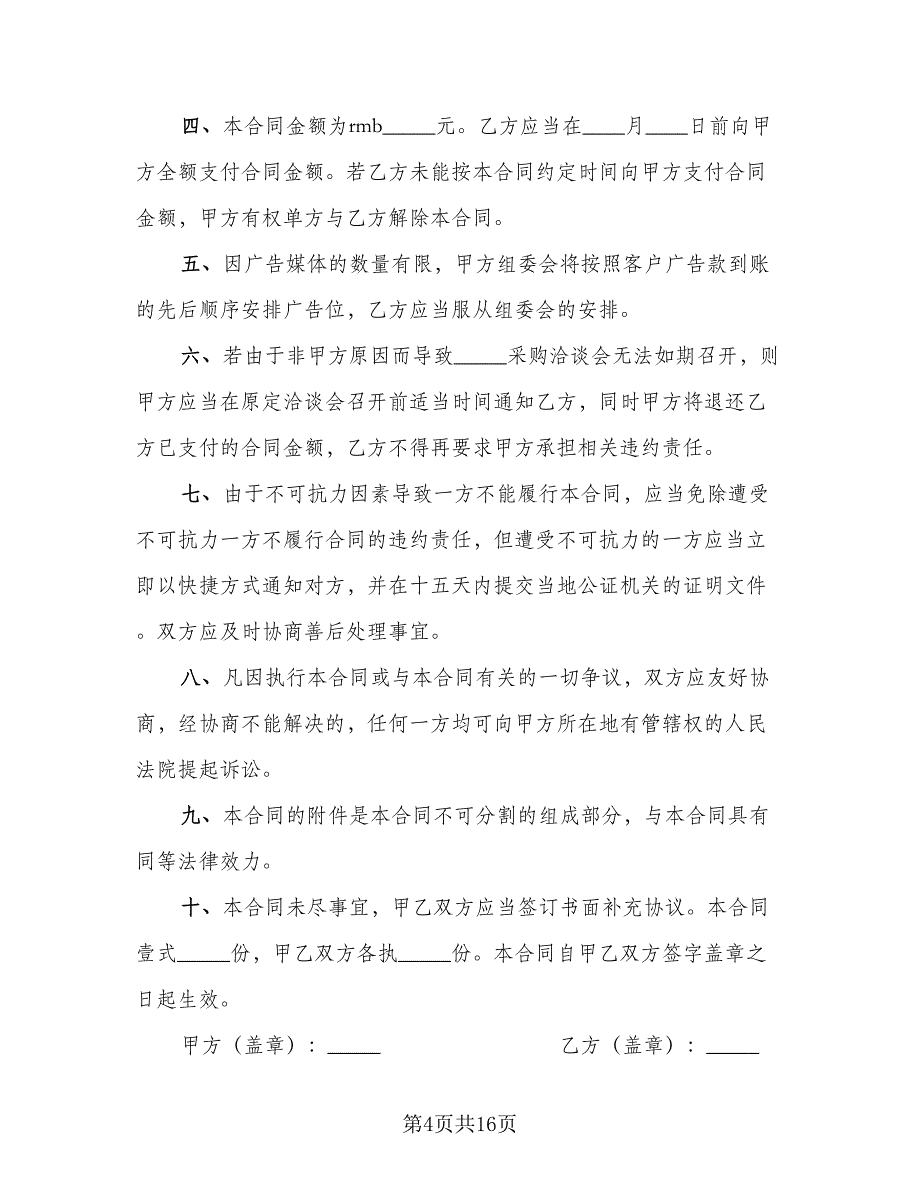 四、本合同金额为rmb_____元。乙方应当在____月____日前向甲
方全额支付合同金额。若乙方未能按本合同约定时间向甲方支付合同
金额，甲方有权单方与乙方解除本合同。
五、因广告媒体的数量有限，甲方组委会将按照客户广告款到账
的先后顺序安排广告位，乙方应当服从组委会的安排。
六、若由于非甲方原因而导致_____采购洽谈会无法如期召开，则
甲方应当在原定洽谈会召开前适当时间通知乙方，同时甲方将退还乙
方已支付的合同金额，乙方不得再要求甲方承担相关违约责任。
七、由于不可抗力因素导致一方不能履行本合同，应当免除遭受
不可抗力一方不履行合同的违约责任，但遭受不可抗力的一方应当立
即以快捷方式通知对方，并在十五天内提交当地公证机关的证明文件
。双方应及时协商善后处理事宜。
八、凡因执行本合同或与本合同有关的一切争议，双方应友好协
商，经协商不能解决的，任何一方均可向甲方所在地有管辖权的人民
法院提起诉讼。
九、本合同的附件是本合同不可分割的组成部分，与本合同具有
同等法律效力。
十、本合同未尽事宜，甲乙双方应当签订书面补充协议。本合同
壹式_____份，甲乙双方各执_____份。本合同自甲乙双方签字盖章之
日起生效。
甲方（盖章）：_____ 乙方（盖章）：_____
第4页共16页